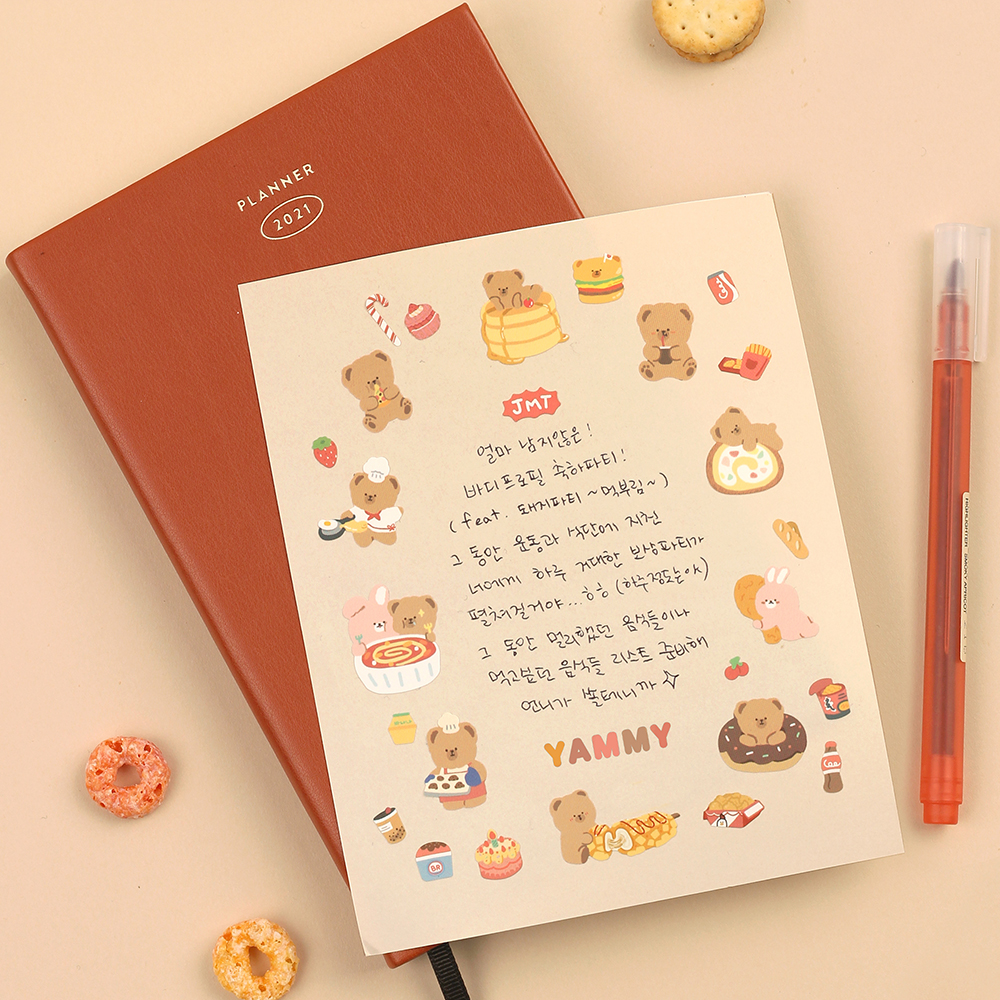 PLANNER
2021
JMT
얼마 남지않은!
바디프로필 축하파티!
(feat. 돼지파티 ~ 먹부림~)
그 동안 운동과 식단에 지친
너에게 하루 거대한 보상파티가
펼쳐질거야...ㅎㅎ (하루정도는야)
그 동안 멀리했던 음식들이나
먹고싶던 음식들 리스트 준비해
언니가 쏠테니까
YAMMY
BR
HIGHLIGHTER SMOKY APRICOT